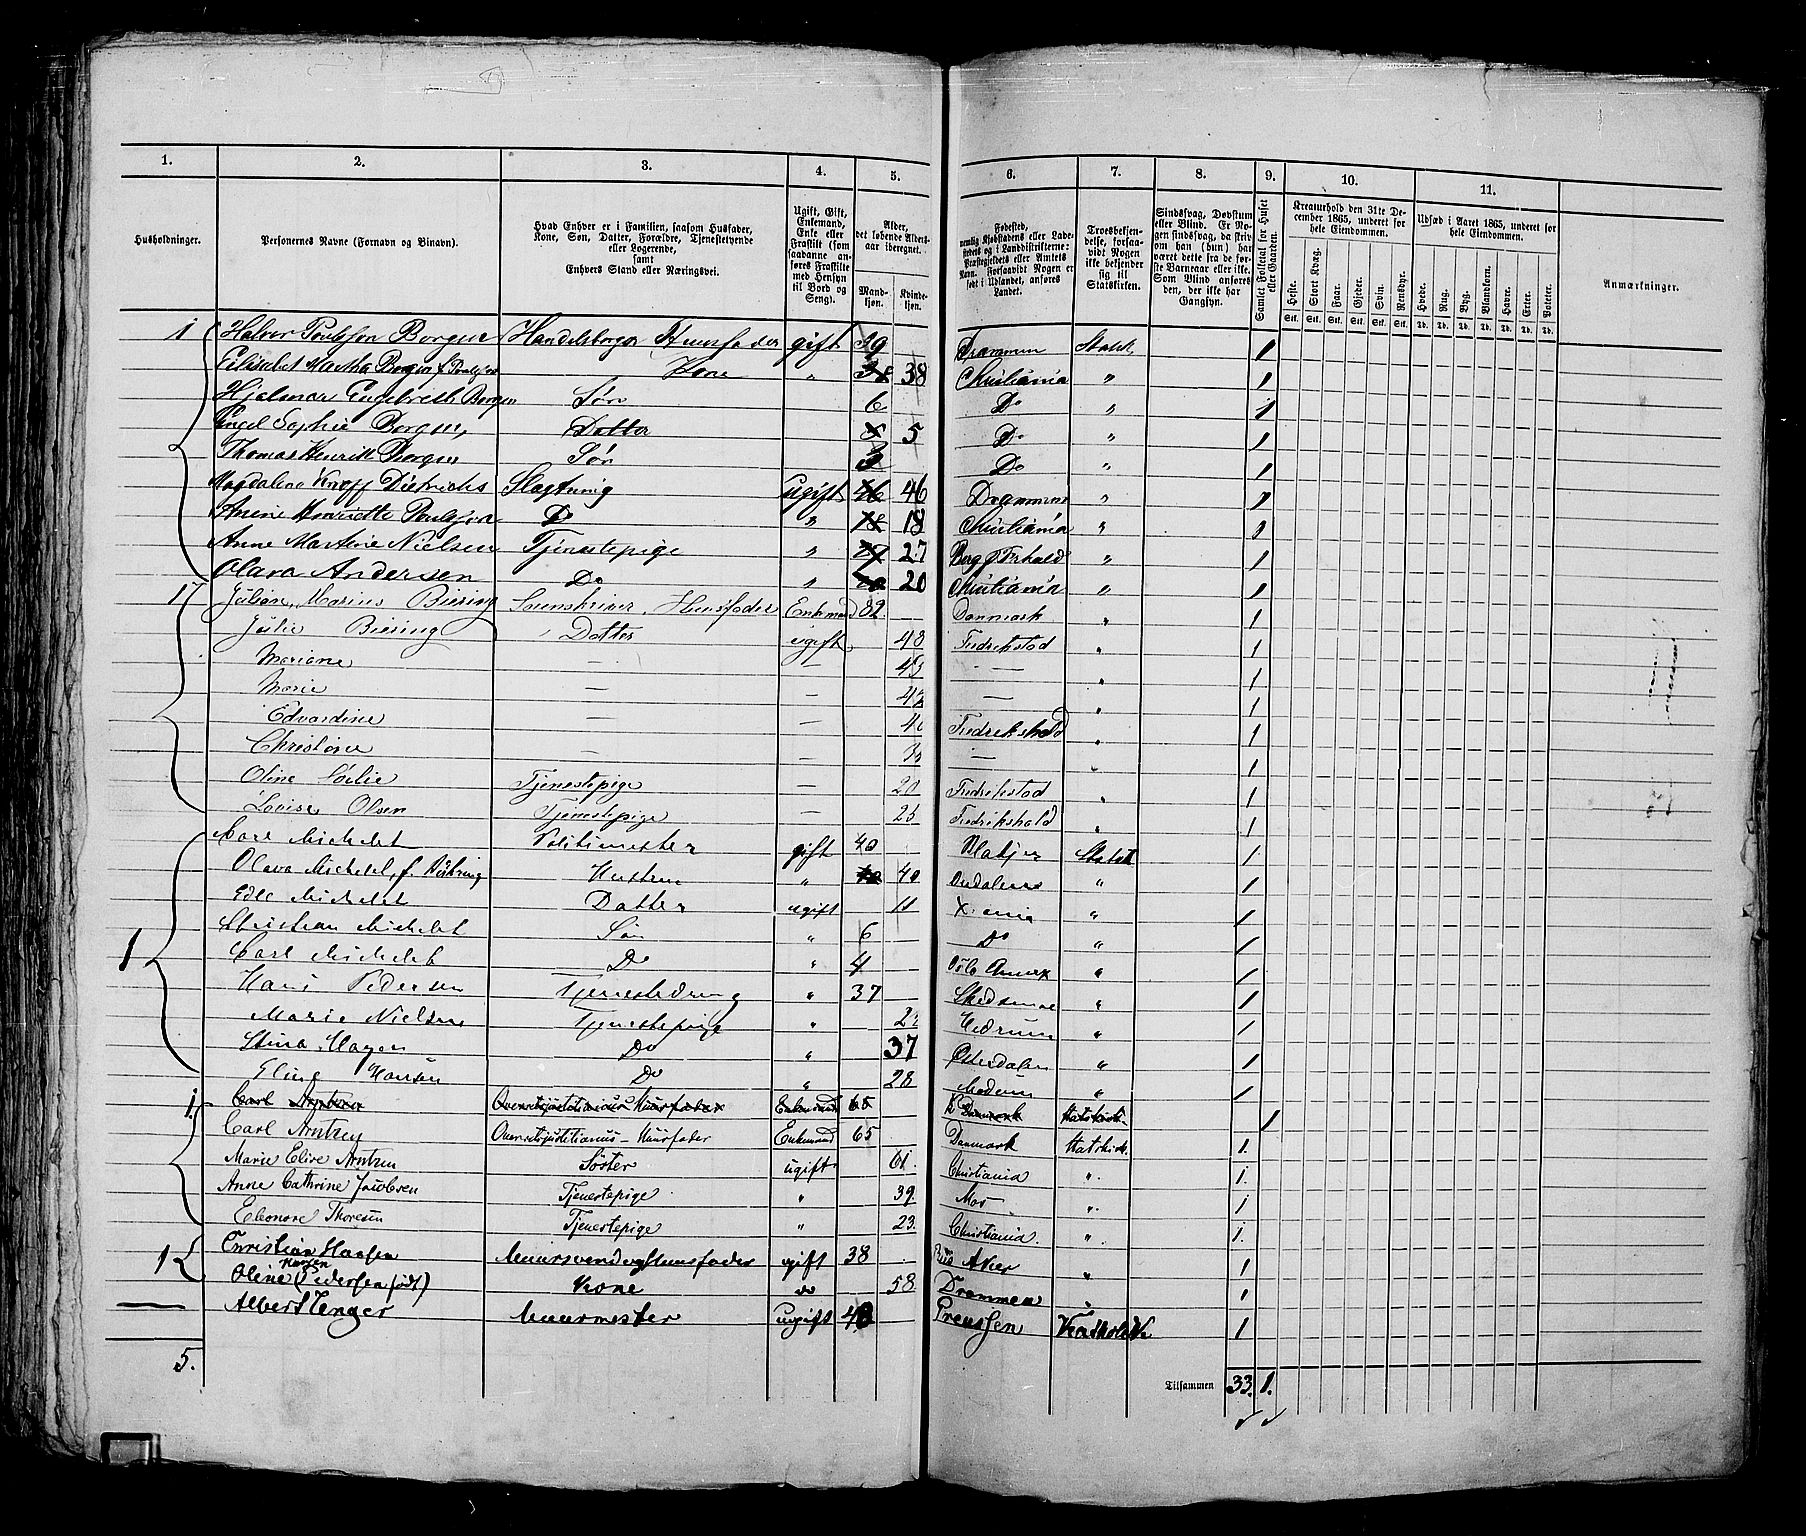 1. 2. 3. 4. 5. 6. 7. 8. 9. 10. 11.
Husholdninger.
Personernes Navne (Fornavn og Binavn).
Hvad Enhver er i Familien, saasom Husfader, Kone, Søn, Datter, Forældre, Tjenestetyende eller Logerende, samt Enhvers Stand eller Næringsvei.
Ugift, Gift, Enkemand, Enke eller Fraskilt (som saadanne anføres Fraskilte med Hensyn til Bord og Seng).
Alder, det løbende Aldersaar iberegnet.
Mandkjøn. Kvindekjøn.
Fødested, nemlig Kjøbstadens eller Ladestedets og i Landdistrikterne: Præstegjeldets eller Amtets Navn. Forsaavidt Nogen er født i Udlandet, anføres Landet.
Troesbekjendelse, forsaavidt Nogen ikke bekjender sig til Statskirken.
Sindssvag, Døvstum eller Blind. Er Nogen sindssvag, da skrives om han (hun) har været dette fra de første Barneaar eller ikke. Som Blind anføres den, der ikke har Gangsyn.
Samlet Folketal for Huset eller Gaarden.
Kreaturhold den 31te December 1865, underet for hele Eiendommen.
Heste. Stort Kvæg. Faar. Gjeder. Svin. Rensdyr.
Stk. Stk. Stk. Stk. Stk. Stk.
Udsæd i Aaret 1865, underet for hele Eiendommen.
Hvede. Rug. Byg. Blandkorn. Havre. Erter. Poteter.
Td. Td. Td. Td. Td. Td. Td.
Anmærkninger.
1 Halvor Poulsson Borgen Handelsborger Huusfader gift 39 Drammen Statsk 1
Elisabet Martha Borgen f. Poulsson Kone " 38 38 Christiania " 1
Hjalmar Engebreth Borgen Søn 6 Do " 1
Engel Sophie Borgen Datter 5 Do " 1
Thomas Henrik Borgen Søn 3 Do " 1
Magdalene Dietrichs Slagtning Ugift 46 46 Drammen " 1
Henriette Poulsson Do " 18 18 Christiania " 1
Anne Martine Nielsen Tjenestepige " 27 27 Berg Frhald " 1
Olava Andersen Do " 20 20 Christiania " 1
1 Julian Marius Biering Husfader Enkemand 82. Danmark " 1
Julie Biering Datter ugift 48 Fredrikstad " 1
Mariane — — — " 1
Marie — — — " 1
Edvardine — — 40 Fredrikshald " 1
Christine — — — " 1
Oline Tjenestepige — 20 Fredrikstad " 1
Lovise Olsen Tjenestepige — 25 Fredrikshald " 1
1 Carl Michelet Politimester gift 40 Statsk 1
Olava Michelet, f. Hustru " 40 40 " 1
Edle Michelet Datter ugift 11 X.ania " 1
Christian Michelet Søn " 6 Do " 1
Carl Michelet Do " 4 Oslo Annex " 1
Hans Pedersen Tjenestedreng " 37 Skedsmoe " 1
Marie Nielsen Tjenestepige " Hedrum " 1
Stina Do " 37 Østerdalen " 1
Eline Hansen Do " 28 Modum " 1
1 Carl Arntzen Overretsjustitiarius Huusfader Enkemand 65 Danmark Statskirk. 1
Carl Arntzen Overretsjustitiarius — Huusfader Enkemand 65 Danmark Statskirk. 1.
Marie Elise Arntzen Søster ugift 61. Christiania ". 1.
Anne Cathrine Jacobsen Tjenestepige " 39. Mos ". 1
Eleonore Thoresen Tjenestepige " 23. Christiania. ". 1.
1 Christian Hansen Muursvend og Huusfader gift 38 Aker " 1
Oline Hansen (Pedersen født) Kone do 58 Drammen " 1
— Albert Zenger Muurmester ugift 40 Preussen Katholik 1
5. Tilsammen 33. 1.